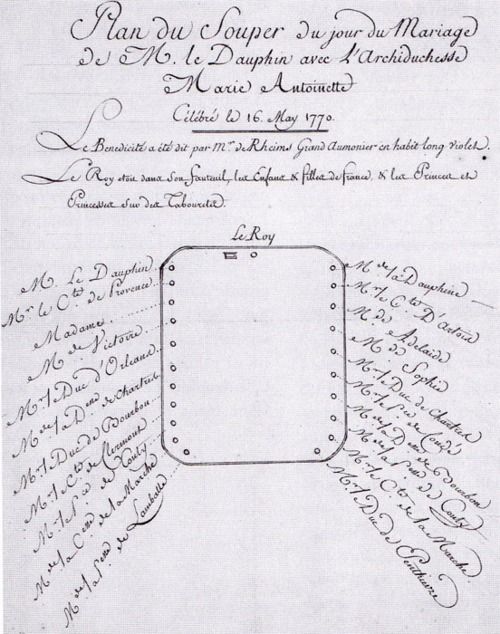 Plan du Souper du jour du Mariage
de M. le Dauphin avec L'Archiduchesse
Marie Antoinette
Célébré le 16. May 1770.
Le Benedicité a été dit par Mr. de Rheims Grand Aumonier en habit long violet.
Le Roy etoit dans son fauteuil, les Enfans & filles de france, & les Princes et
Princesses sur des Tabourets.
Le Roy
M. Le Dauphin
Mr. le Cte. de Provence
Madame
M. de Victoire
Mr. le Duc d'Orleans
Me. de la D. de Chartres
Mr. le Duc de Bourbon
Mr. le Cte. de Clermont
Mr. le P. de Conty
Me. de la C. de la Marche
Me. de la P. de Lamballe
Me. de la Dauphine
Mr. le Cte. D'Artois
M. de Adelaide
M. de Sophie
Mr. le Duc de Chartres
Mr. le P. de Condé
Me. de la D. de Bourbon
Me. de la P. de Conty
Mr. le Cte. de la Marche
Mr. le Duc de Penthievre